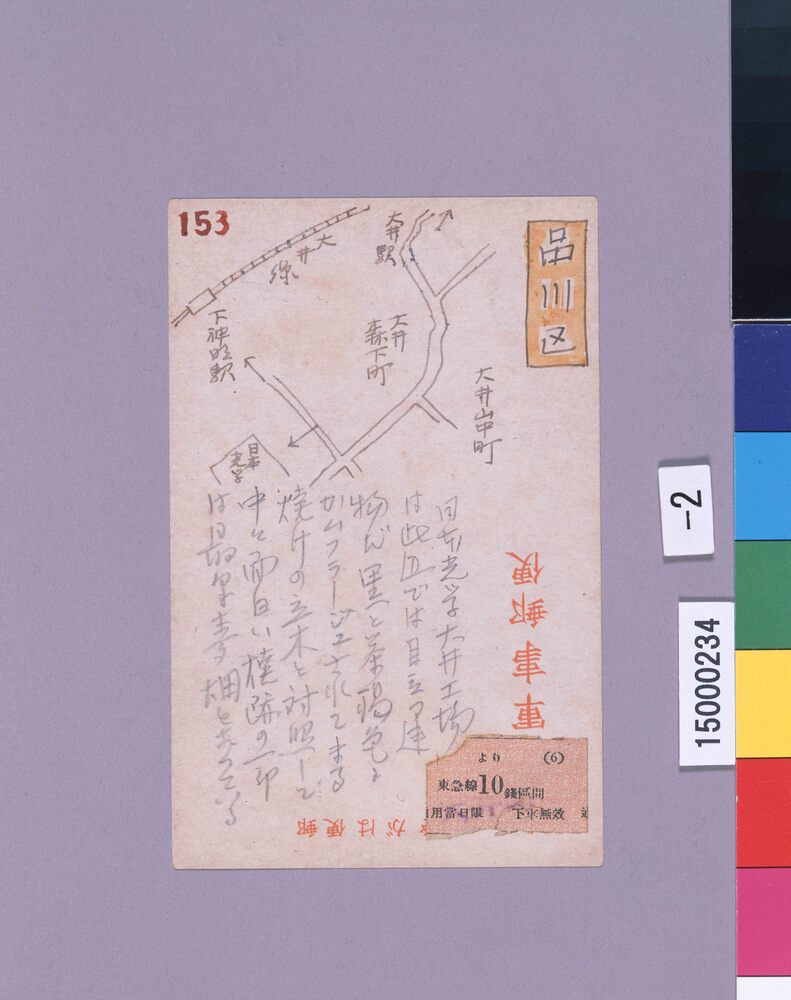 153
品川区
大井線
大井駅
下神明駅
大井
森下町
大井山中町
日本
光学
日本光学大井工場
は此辺では目立つ建
物だ 黒と茶褐色に
カムフラージュされてゐる
焼けの立木と対照して
中々面白い
は最早麦畑となってゐる
軍事郵便
郵便はがき
より (6)
東急線10銭區間
用當日限 下車無効
-2
15000234